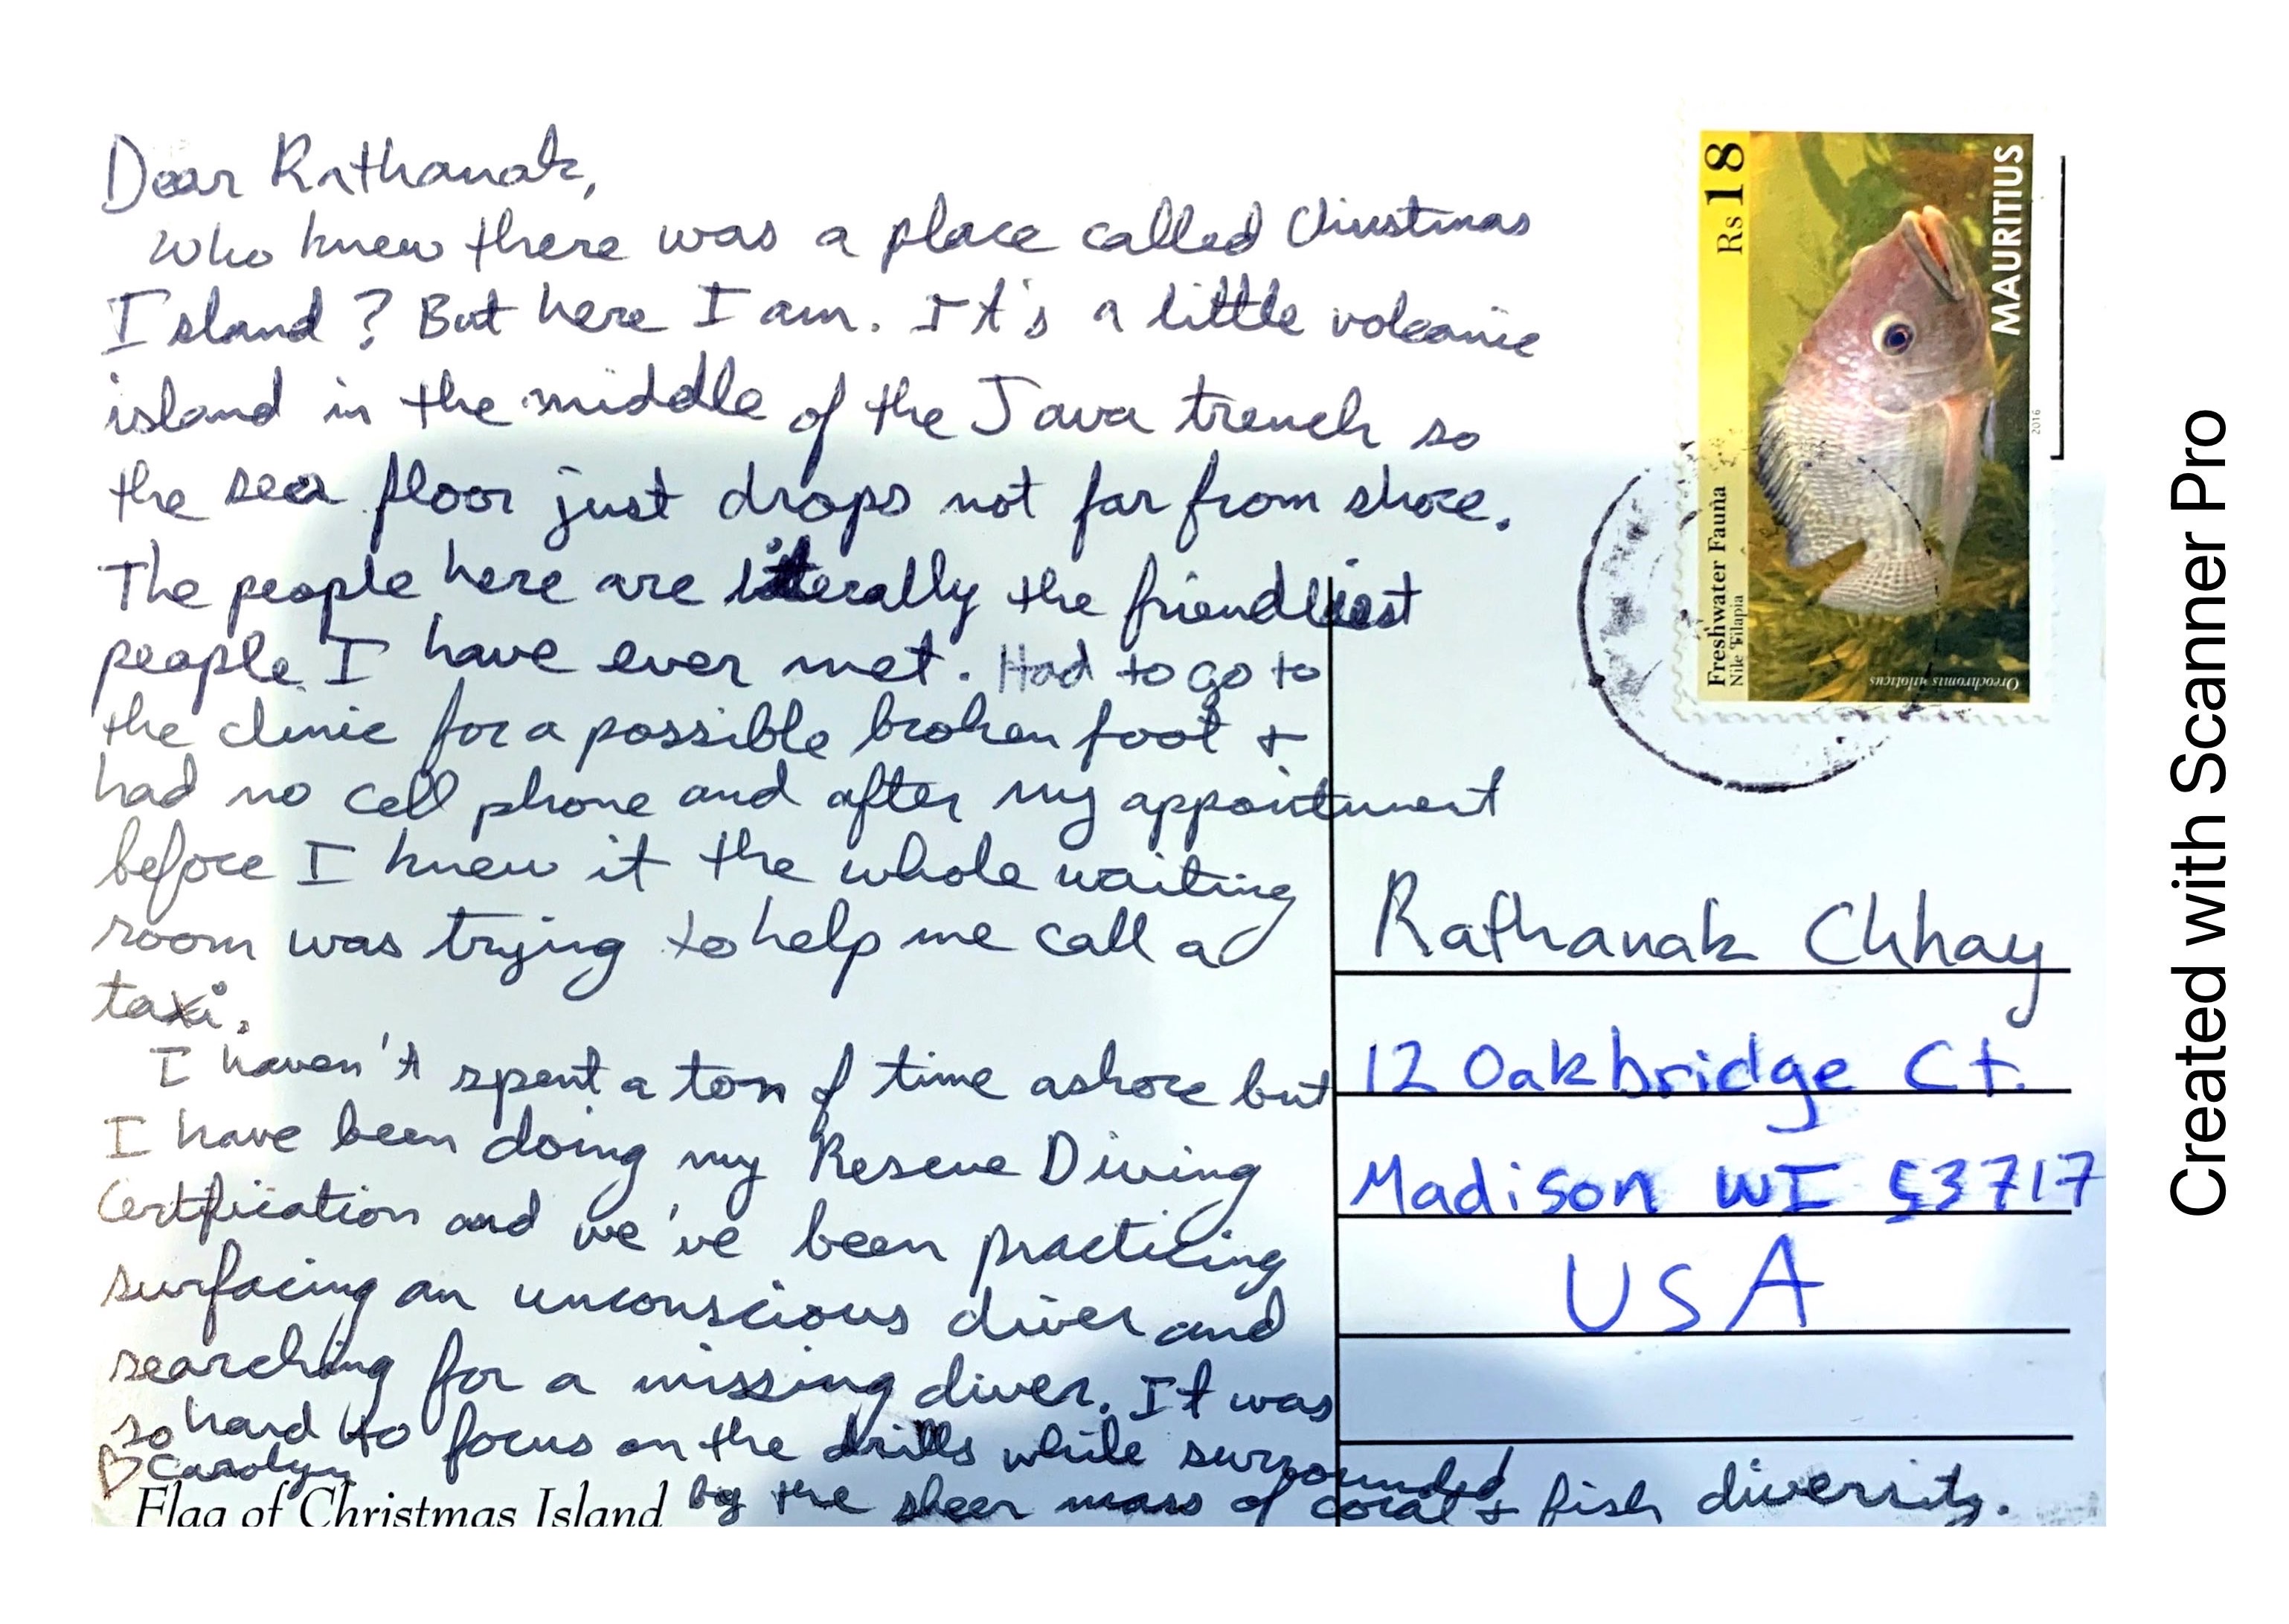 Dear Rathanak,
Who knew there was a place called Christmas
Island? But here I am. It's a little volcanic
island in the middle of the Java trench so
the sea floor just drops not far from shore.
The people here are literally the friendliest
people I have ever met. Had to go to
the clinic for a possible broken foot +
had no cell phone and after my appointment
before I knew it the whole waiting
room was trying to help me call a
taxi.
I haven't spent a ton of time ashore but
I have been doing my Rescue Diving
Certification and we've been practicing
surfacing an unconscious diver and
searching for a missing diver. It was
so hard to focus on the drills while surrounded
by the sheer mass of coral + fish diversity.
♡ Carolyn
Flag of Christmas Island
Rs 18
MAURITIUS
2016
Freshwater Fauna
Nile Tilapia
Oreochromis niloticus
Rathanak Chhay
12 Oakbridge Ct.
Madison WI 53717
USA
Created with Scanner Pro